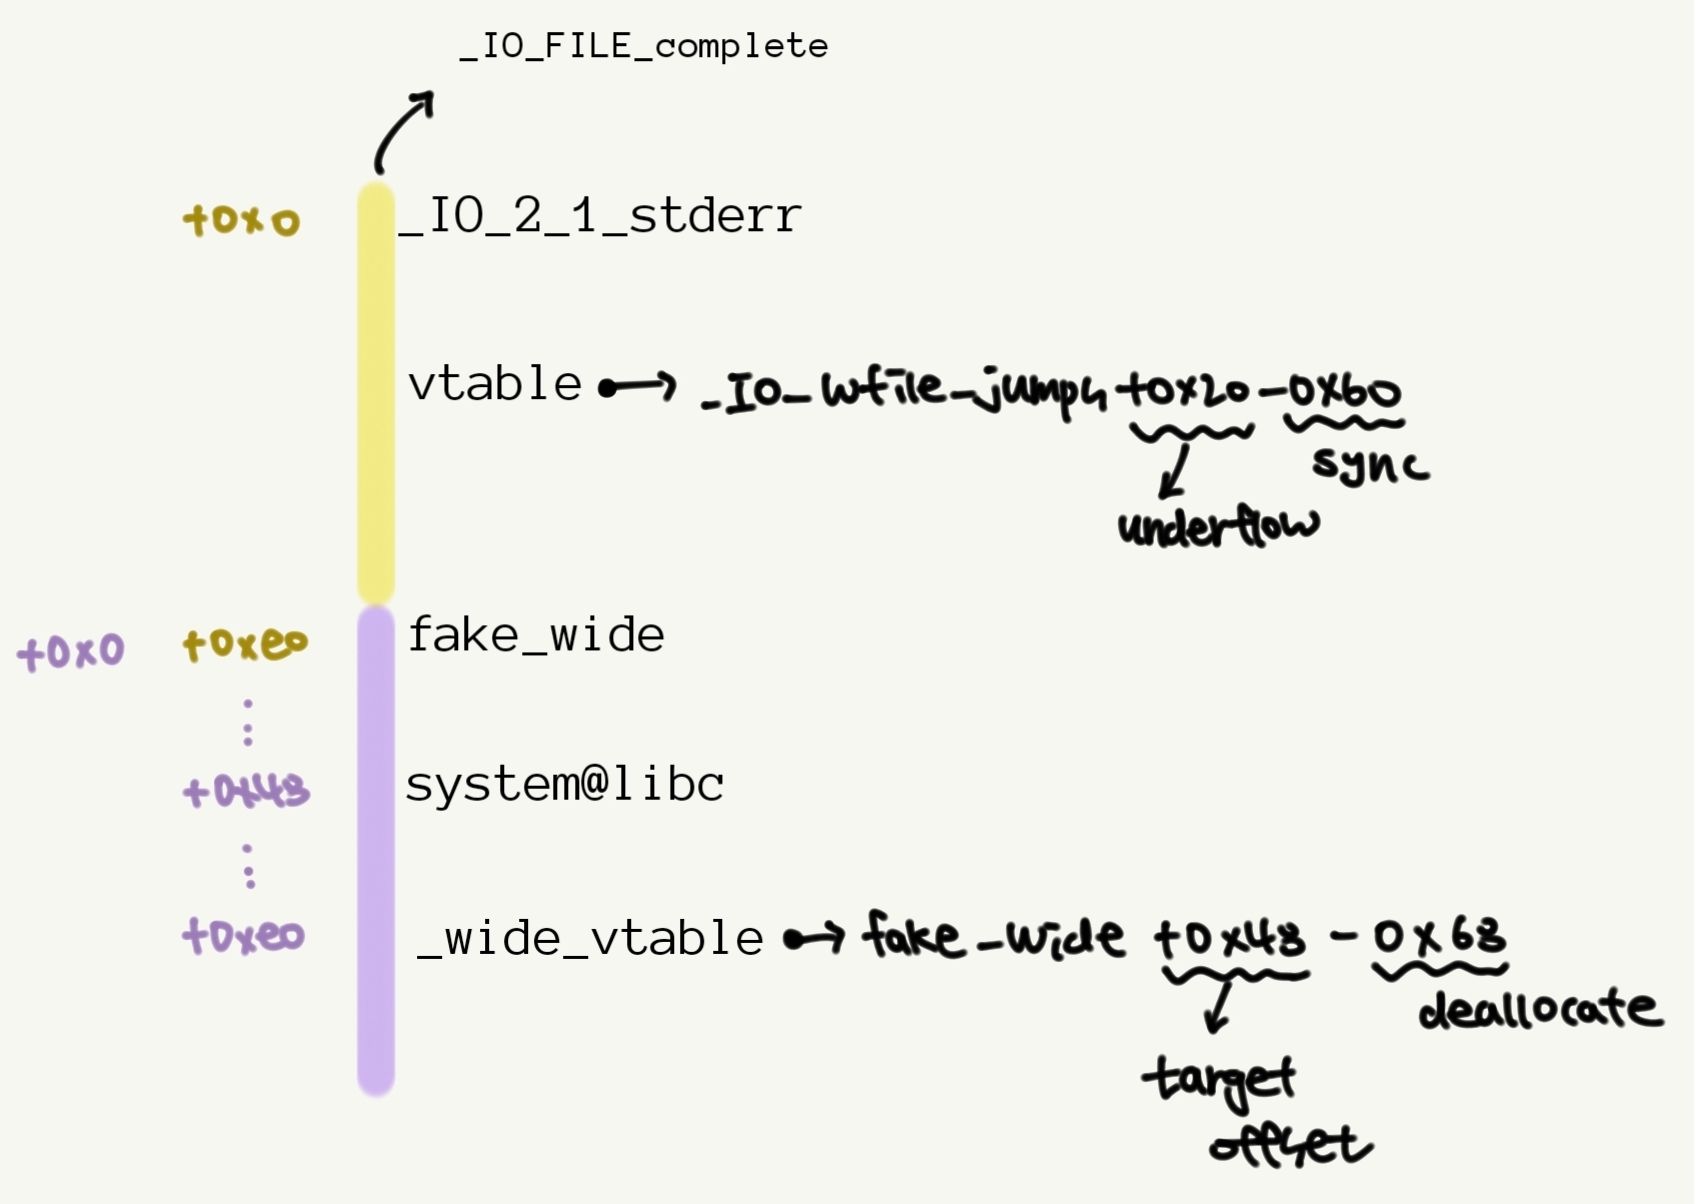 _IO_FILE_complete
+0x0 _IO_2_1_stderr
vtable → _IO_wfile_jumps +0x20 - 0x60
sync
underflow
+0x0 +0xe0 fake_wide
+0x48 system@libc
+0xe0 _wide_vtable → fake_wide +0x48 - 0x68
deallocate
target
offset